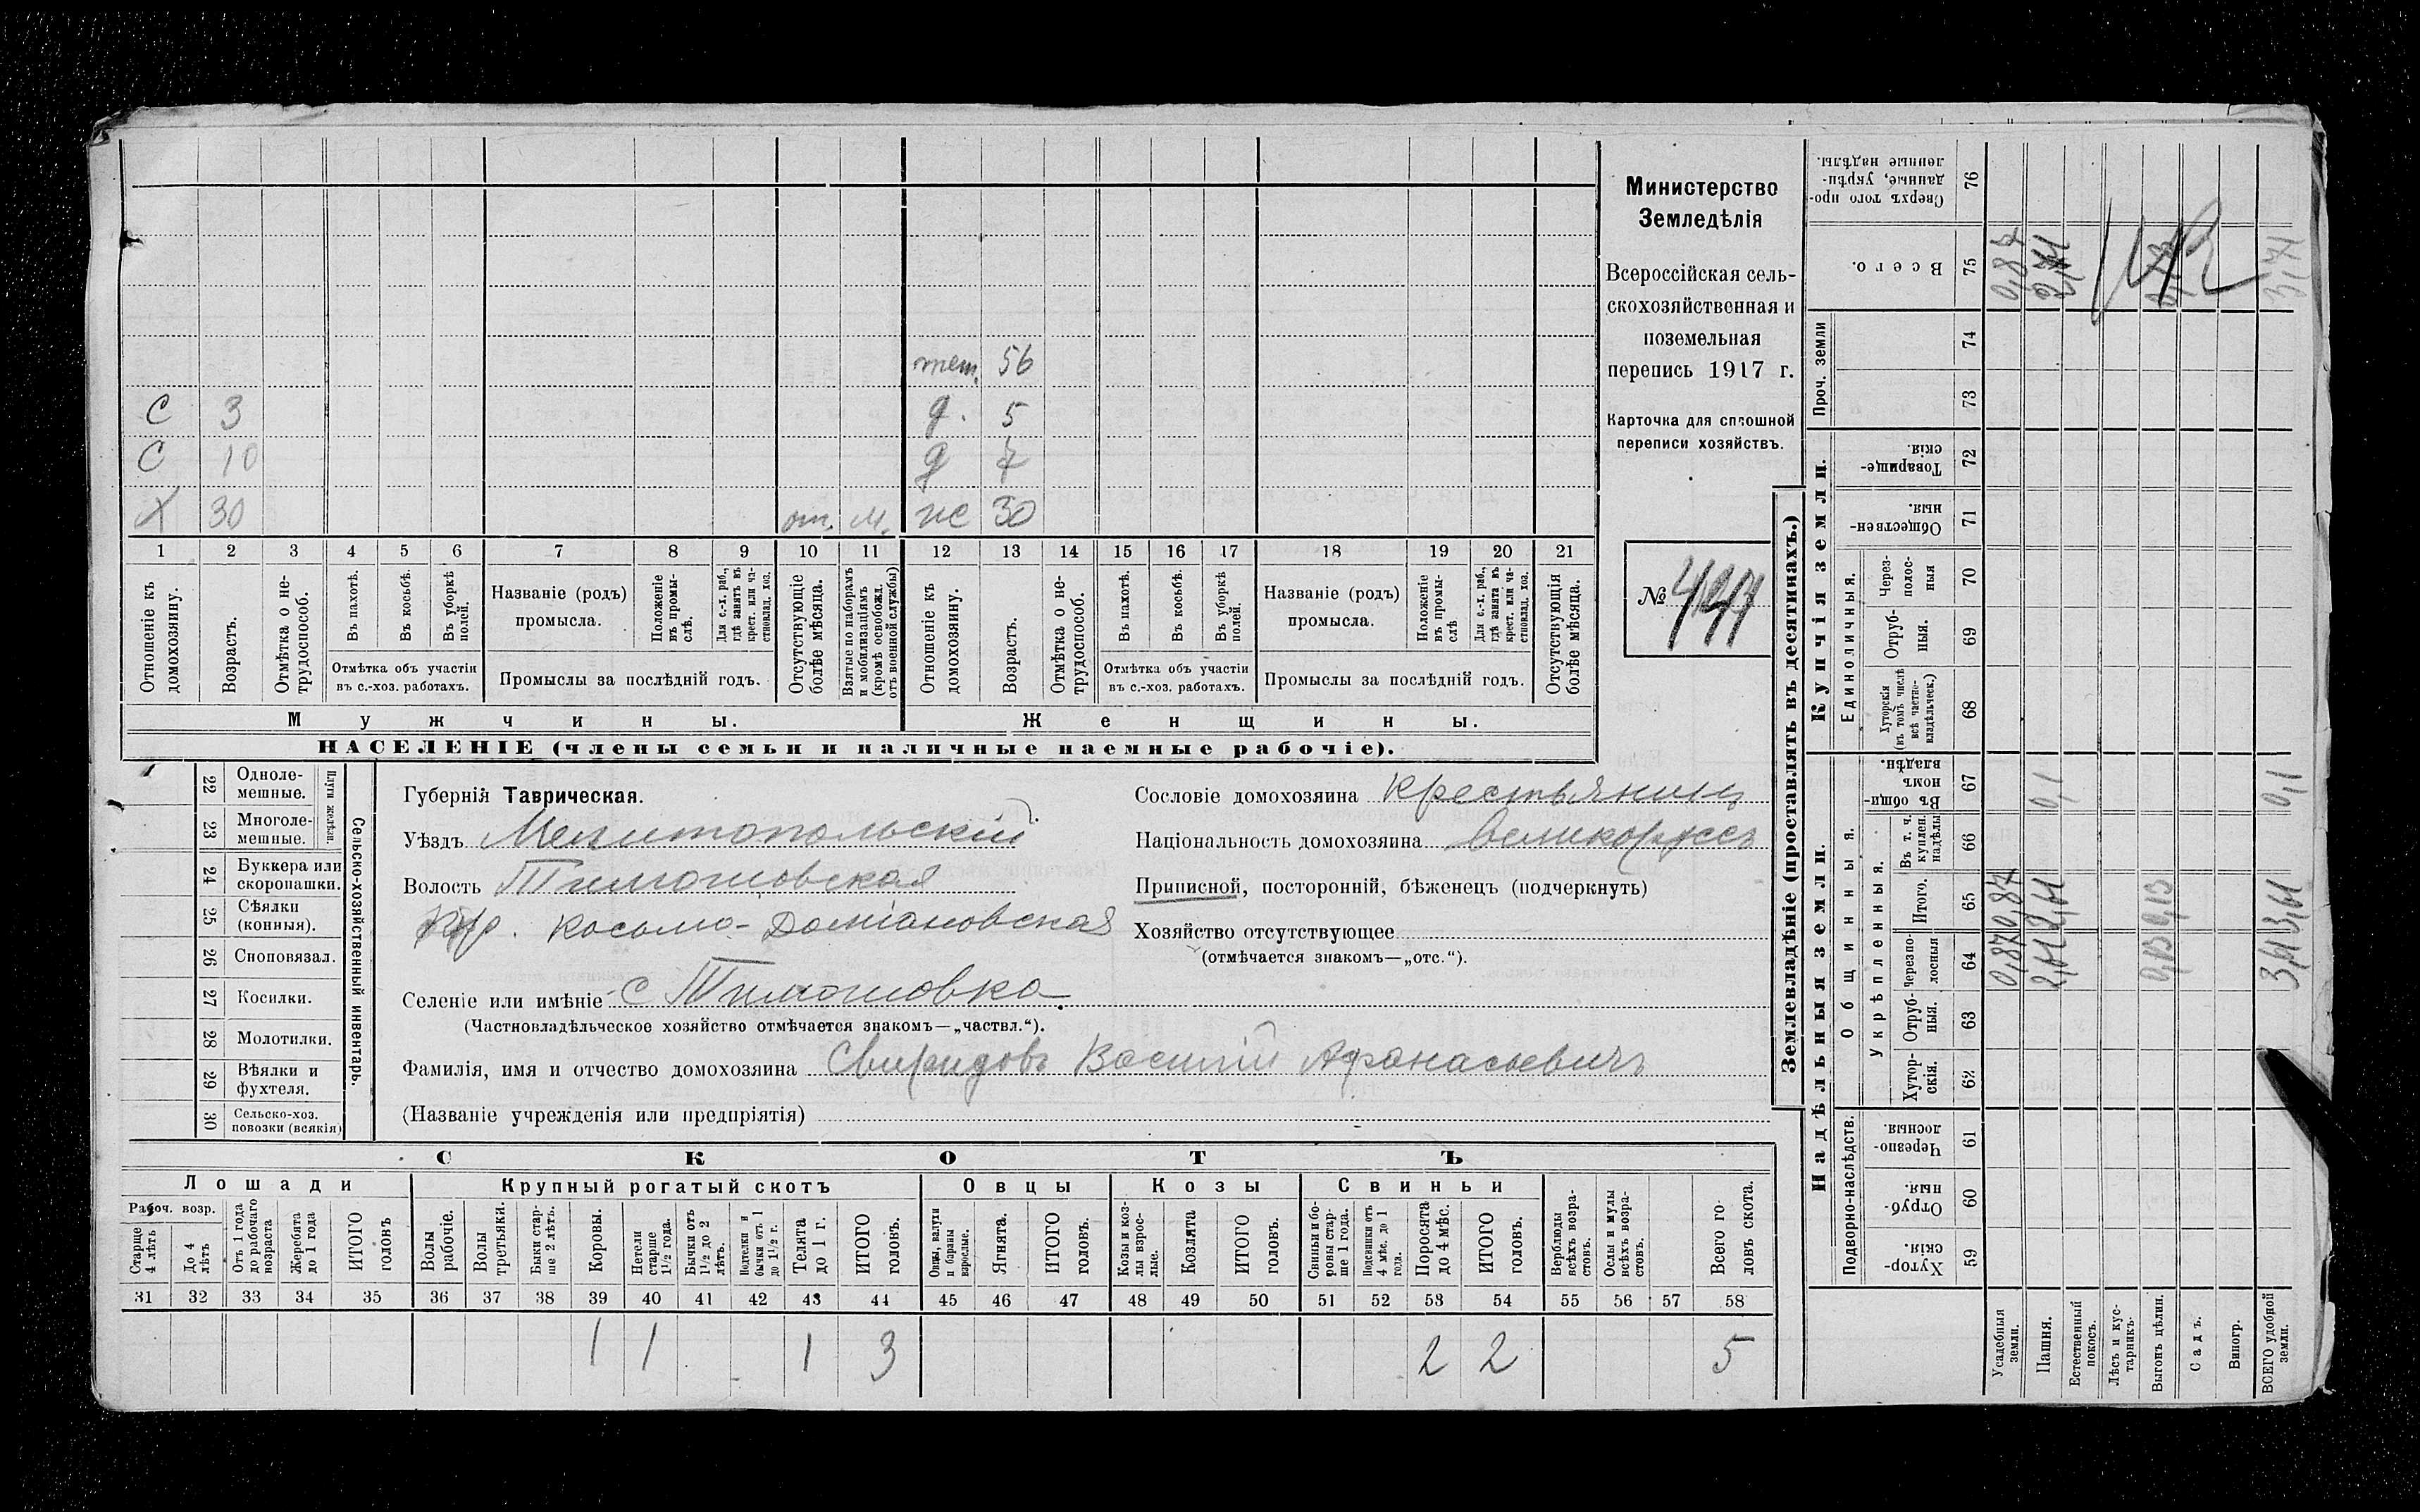 тет. 56
С 3 д. 5
С 10 д 7
Х 30 от. м. же 30
1 2 3 4 5 6 7 8 9 10 11 12 13 14 15 16 17 18 19 20 21
Отношеніе къ домохозяину.
Возрастъ.
Отмѣтка о нетрудоспособ.
Въ пахотѣ.
Въ косьбѣ.
Въ уборкѣ полей.
Отмѣтка объ участіи
въ с.-хоз. работахъ.
Названіе (родъ)
промысла.
Положеніе въ промыслѣ.
Для с.-х. раб., гдѣ занятъ въ крест. или частновлад. хоз.
Промыслы за послѣдній годъ.
Отсутствующіе болѣе мѣсяца.
Взятые по наборамъ и мобилизаціямъ (кромѣ освобожд. отъ военной службы)
Отношеніе къ домохозяину.
Возрастъ.
Отмѣтка о нетрудоспособ.
Въ пахотѣ.
Въ косьбѣ.
Въ уборкѣ полей.
Отмѣтка объ участіи
въ с.-хоз. работахъ.
Названіе (родъ)
промысла.
Положеніе въ промыслѣ
Для с.-х. раб., гдѣ занята въ крест. или частновлад. хоз.
Промыслы за послѣдній годъ.
Отсутствующія болѣе мѣсяца.
Мужчины. Женщины.
НАСЕЛЕНІЕ (члены семьи и наличные наемные рабочіе).
Министерство
Земледѣлія
Всероссійская сель-
скохозяйственная и
поземельная
перепись 1917 г.
Карточка для сплошной
переписи хозяйствъ.
№
22 Однолемешные.
23 Многолемешные.
Плуги желѣзн.
24 Буккера или скоропашки.
25 Сѣялки (конныя).
26 Сноповязал.
27 Косилки.
28 Молотилки.
29 Вѣялки и фухтеля.
30 Сельско-хоз. повозки (всякія)
Сельско-хозяйственный инвентарь.
Губернія Таврическая.
Уѣздъ Мелитопольскій
Волость Тимошовская
пр. Косьмо-Доміановская
Селеніе или имѣніе с Тимошовка.
(Частновладѣльческое хозяйство отмѣчается знакомъ—„частвл.“).
Фамилія, имя и отчество домохозяина Свиридовъ Василій Афанасьевичъ
(Названіе учрежденія или предпріятія)
Сословіе домохозяина крестьянинъ
Національность домохозяина великоруссъ
Приписной, посторонній, бѣженецъ (подчеркнуть)
Хозяйство отсутствующее
(отмѣчается знакомъ—„отс.“).
СКОТЪ
Лошади Крупный рогатый скотъ Овцы Козы Свиньи
Рабоч. возр.
Старше 4 лѣтъ
До 4 лѣтъ
Отъ 1 года до рабочаго возраста
Жеребята до 1 года
ИТОГО головъ
Волы рабочіе.
Волы третьяки.
Быки старше 2 лѣтъ.
Коровы.
Нетели старше 1½ года.
Бычки отъ 1½ до 2 лѣтъ.
Подтелки и бычки отъ 1 до 1½ г.
Телята до 1 г.
ИТОГО головъ.
Овцы, валухи и бараны взрослые.
Ягнята.
ИТОГО головъ.
Козы и козлы взрослые.
Козлята
ИТОГО головъ.
Свиньи и боровы старше 1 года.
Подсвинки отъ 4 мѣс. до 1 года.
Поросята до 4 мѣс.
ИТОГО головъ.
Верблюды всѣхъ возрастовъ.
Ослы и мулы всѣхъ возрастовъ.
Всего головъ скота.
31 32 33 34 35 36 37 38 39 40 41 42 43 44 45 46 47 48 49 50 51 52 53 54 55 56 57 58
1 1 1 3 2 2 5
Землевладѣніе (проставлять въ десятинахъ.)
Надѣльныя земли. Купчія земли. Проч. земли
Подворно-наслѣдств.
Общинныя.
Укрѣпленныя.
Единоличныя.
59 Хуторскія.
60 Отрубныя.
61 Черезполосныя.
62 Хуторскія.
63 Отрубныя.
64 Черезполосныя 0,87 2,61 0,13 3,61
65 Итого. 0,87 2,61 0,13 3,61
66 Въ т. ч. куплен. надѣлы
67 Въ общинномъ владѣн. 0,1 0,1
68 Хуторскія (въ томъ числѣ всѣ частновладѣльческ.)
69 Отрубныя.
70 Черезполосныя
71 Общественныя.
72 Товарищескія.
73
74
75 Всего. 0,87 3,71
76 Сверхъ того проданные, укрѣпленные надѣлы.
Усадебныя земли.
Пашня.
Естественный покосъ.
Лѣсъ и кустарникъ.
Выгонъ цѣлин.
Садъ.
Виногр.
ВСЕГО удобной земли.